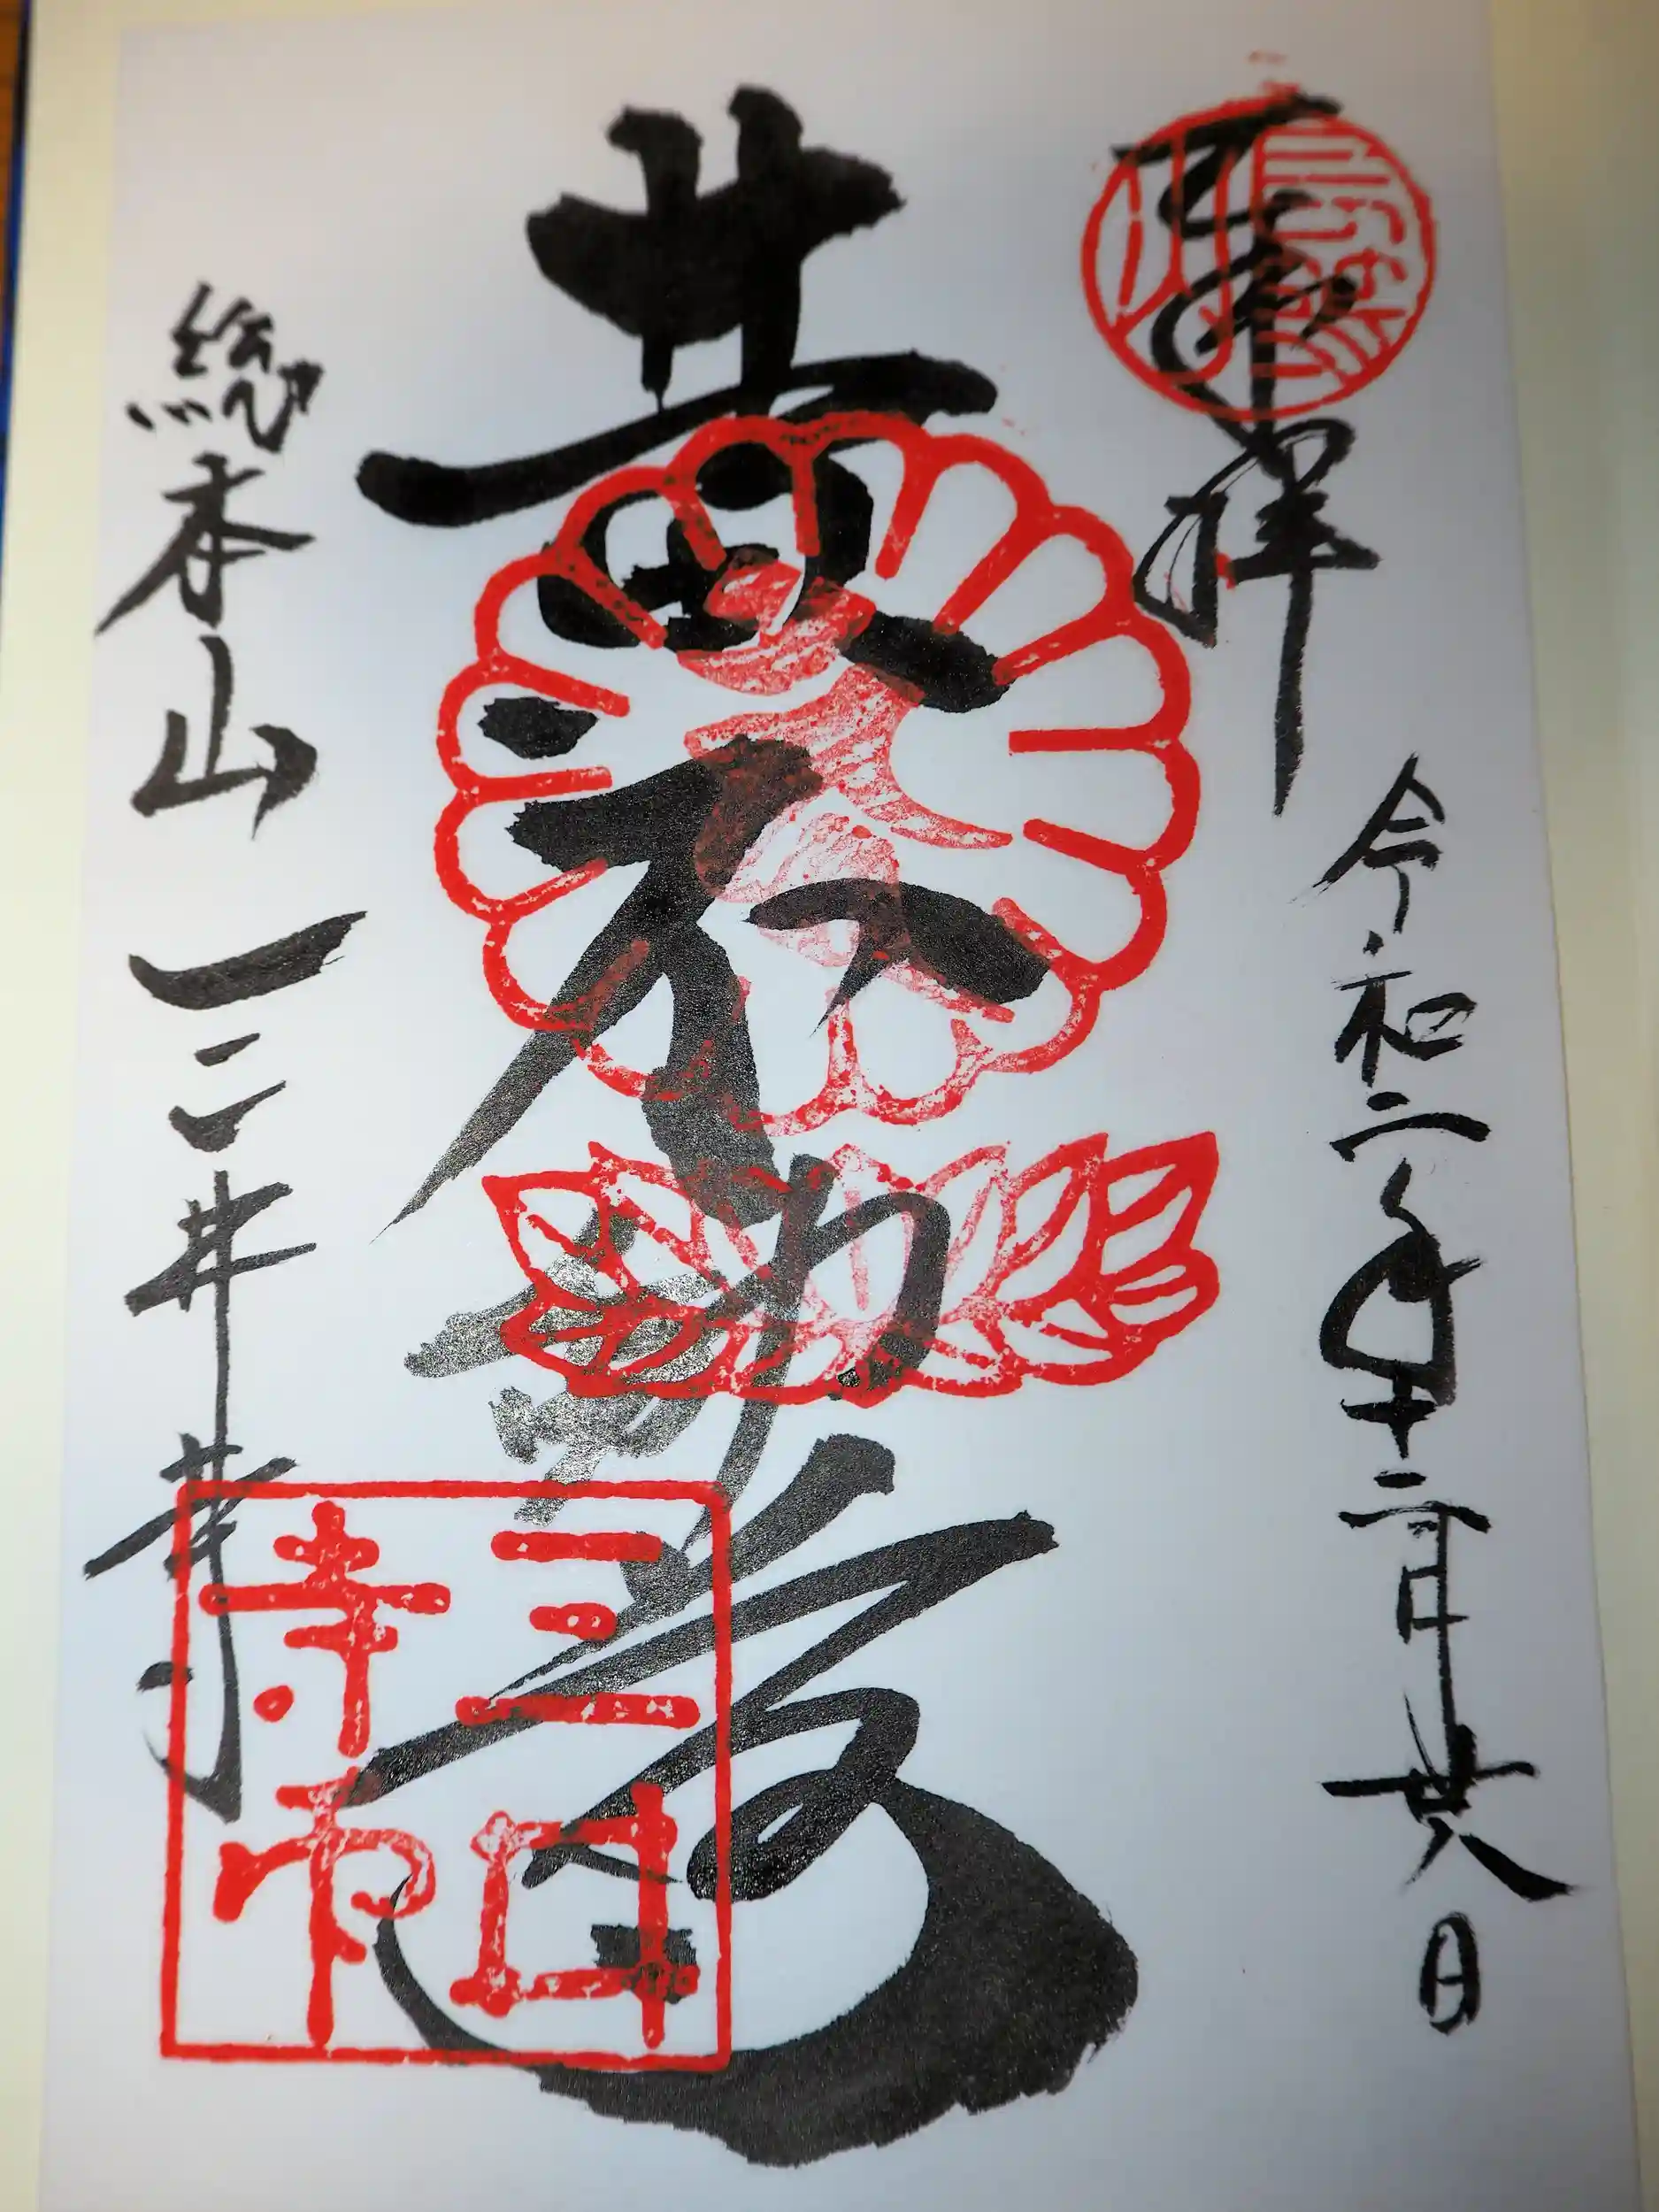 奉拝
令和二年十二月廿八日
黄不動尊
総本山 三井寺
三井寺印